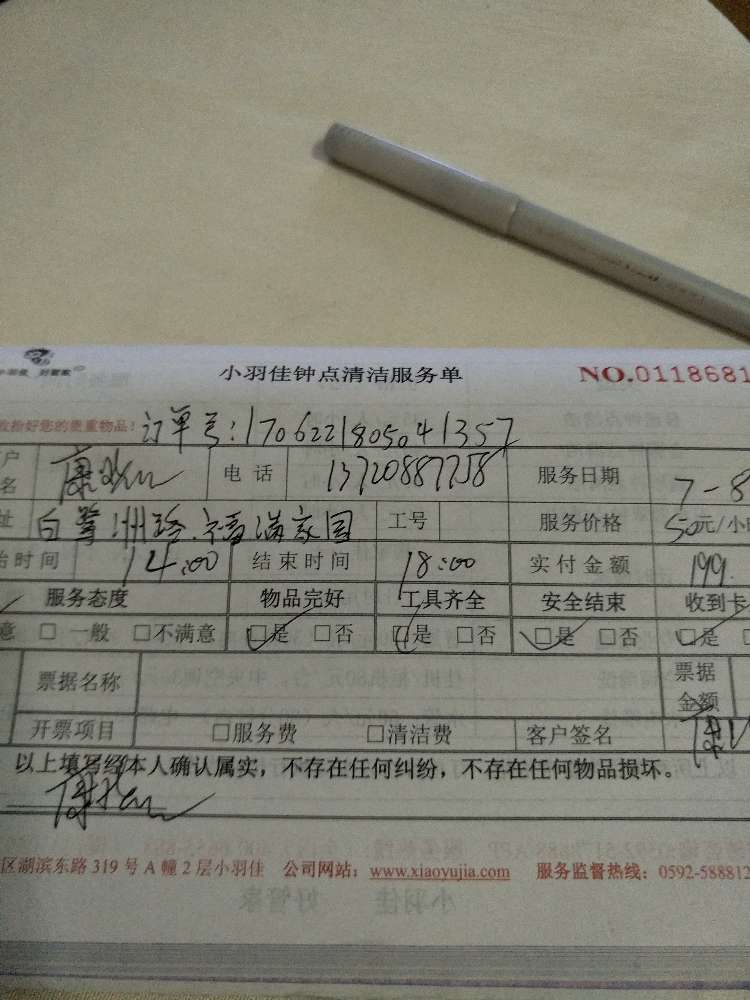 小羽佳 好管家
小羽佳钟点清洁服务单 NO.0118681
收拾好您的贵重物品! 订单号:170622180504 1357
户 名 康 电话 13720887758 服务日期 7-8
址 白鹭洲路.福满家园 工号 服务价格 50元/小
始时间 14:00 结束时间 18:00 实付金额 199.
服务态度 物品完好 工具齐全 安全结束 收到卡
意 □一般 □不满意 □是 □否 □是 □否 □是 □否 □是
票据名称 票据金额
开票项目 □服务费 □清洁费 客户签名 康
以上填写经本人确认属实，不存在任何纠纷，不存在任何物品损坏。
康
区湖滨东路 319 号 A 幢 2 层小羽佳 公司网站：www.xiaoyujia.com 服务监督热线：0592-588812